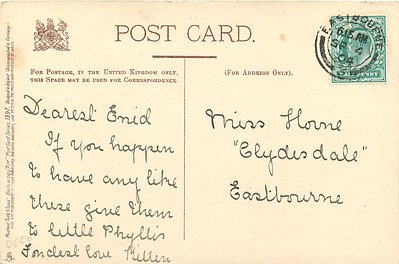 POST CARD.
FOR POSTAGE, IN THE UNITED KINGDOM ONLY,
THIS SPACE MAY BE USED FOR CORRESPONDENCE.
(FOR ADDRESS ONLY.)
EASTBOURNE
6.15 AM
4
04
HALFPENNY
Dearest Enid
If you happen
to have any like
these give them
to little Phyllis
Fondest love
Miss Horne
"Clydesdale"
Eastbourne